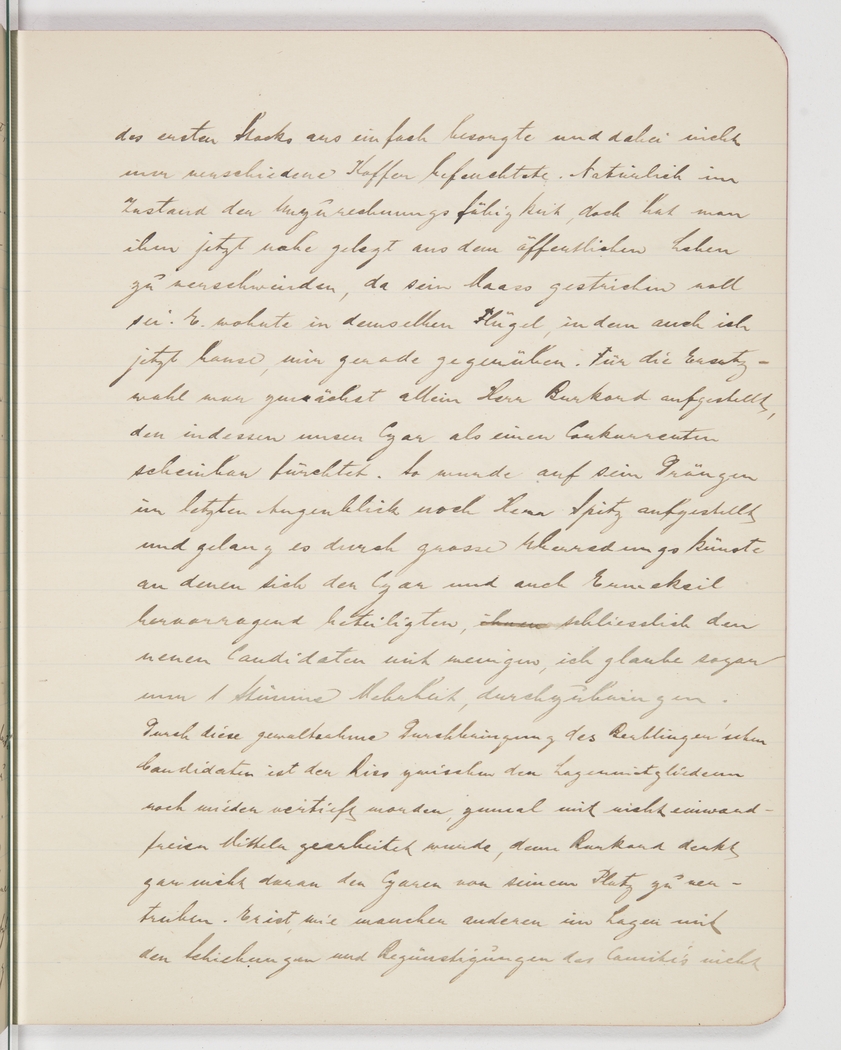 des ersten Stocks aus einfach besorgte und dabei nicht
nur verschiedene Koffer befeuchtete. Natürlich im
Zustand der Unzurechnungsfähigkeit, doch hat man
ihm jetzt nahe gelegt aus dem öffentlichen Leben
zu verschwinden, da sein Maass gestrichen voll
sei. E. wohnte in demselben Flügel, in dem auch ich
jetzt hause, mir gerade gegenüber. Für die Ersatz-
wahl war zunächst allein Herr Burkard aufgestellt,
den indessen unser Czar als einen Conkurrenten
scheinbar fürchtet. So wurde auf sein Drängen
im letzten Augenblick noch Herr Spitz aufgestellt
und gelang es durch grosse Überredungskünste
an denen sich der Czar und auch
hervorragend beteiligten, ihnen schliesslich den
neuen Candidaten mit weniger, ich glaube sogar
nur 1 Stimme Mehrheit, durchzubringen.
Durch diese gewaltsahme Durchbringung des Reblinger'schen
Candidaten ist der Riss zwischen den Lagermitgliedern
noch wieder vertieft worden, zumal mit nicht einwand-
freien Mitteln gearbeitet wurde, denn Burkard denkt
gar nicht daran den Czaren von seinem Platz zu ver-
treiben. Er ist, wie mancher anderer im Lager mit
den Schiebungen und Begünstigungen des Comités nicht